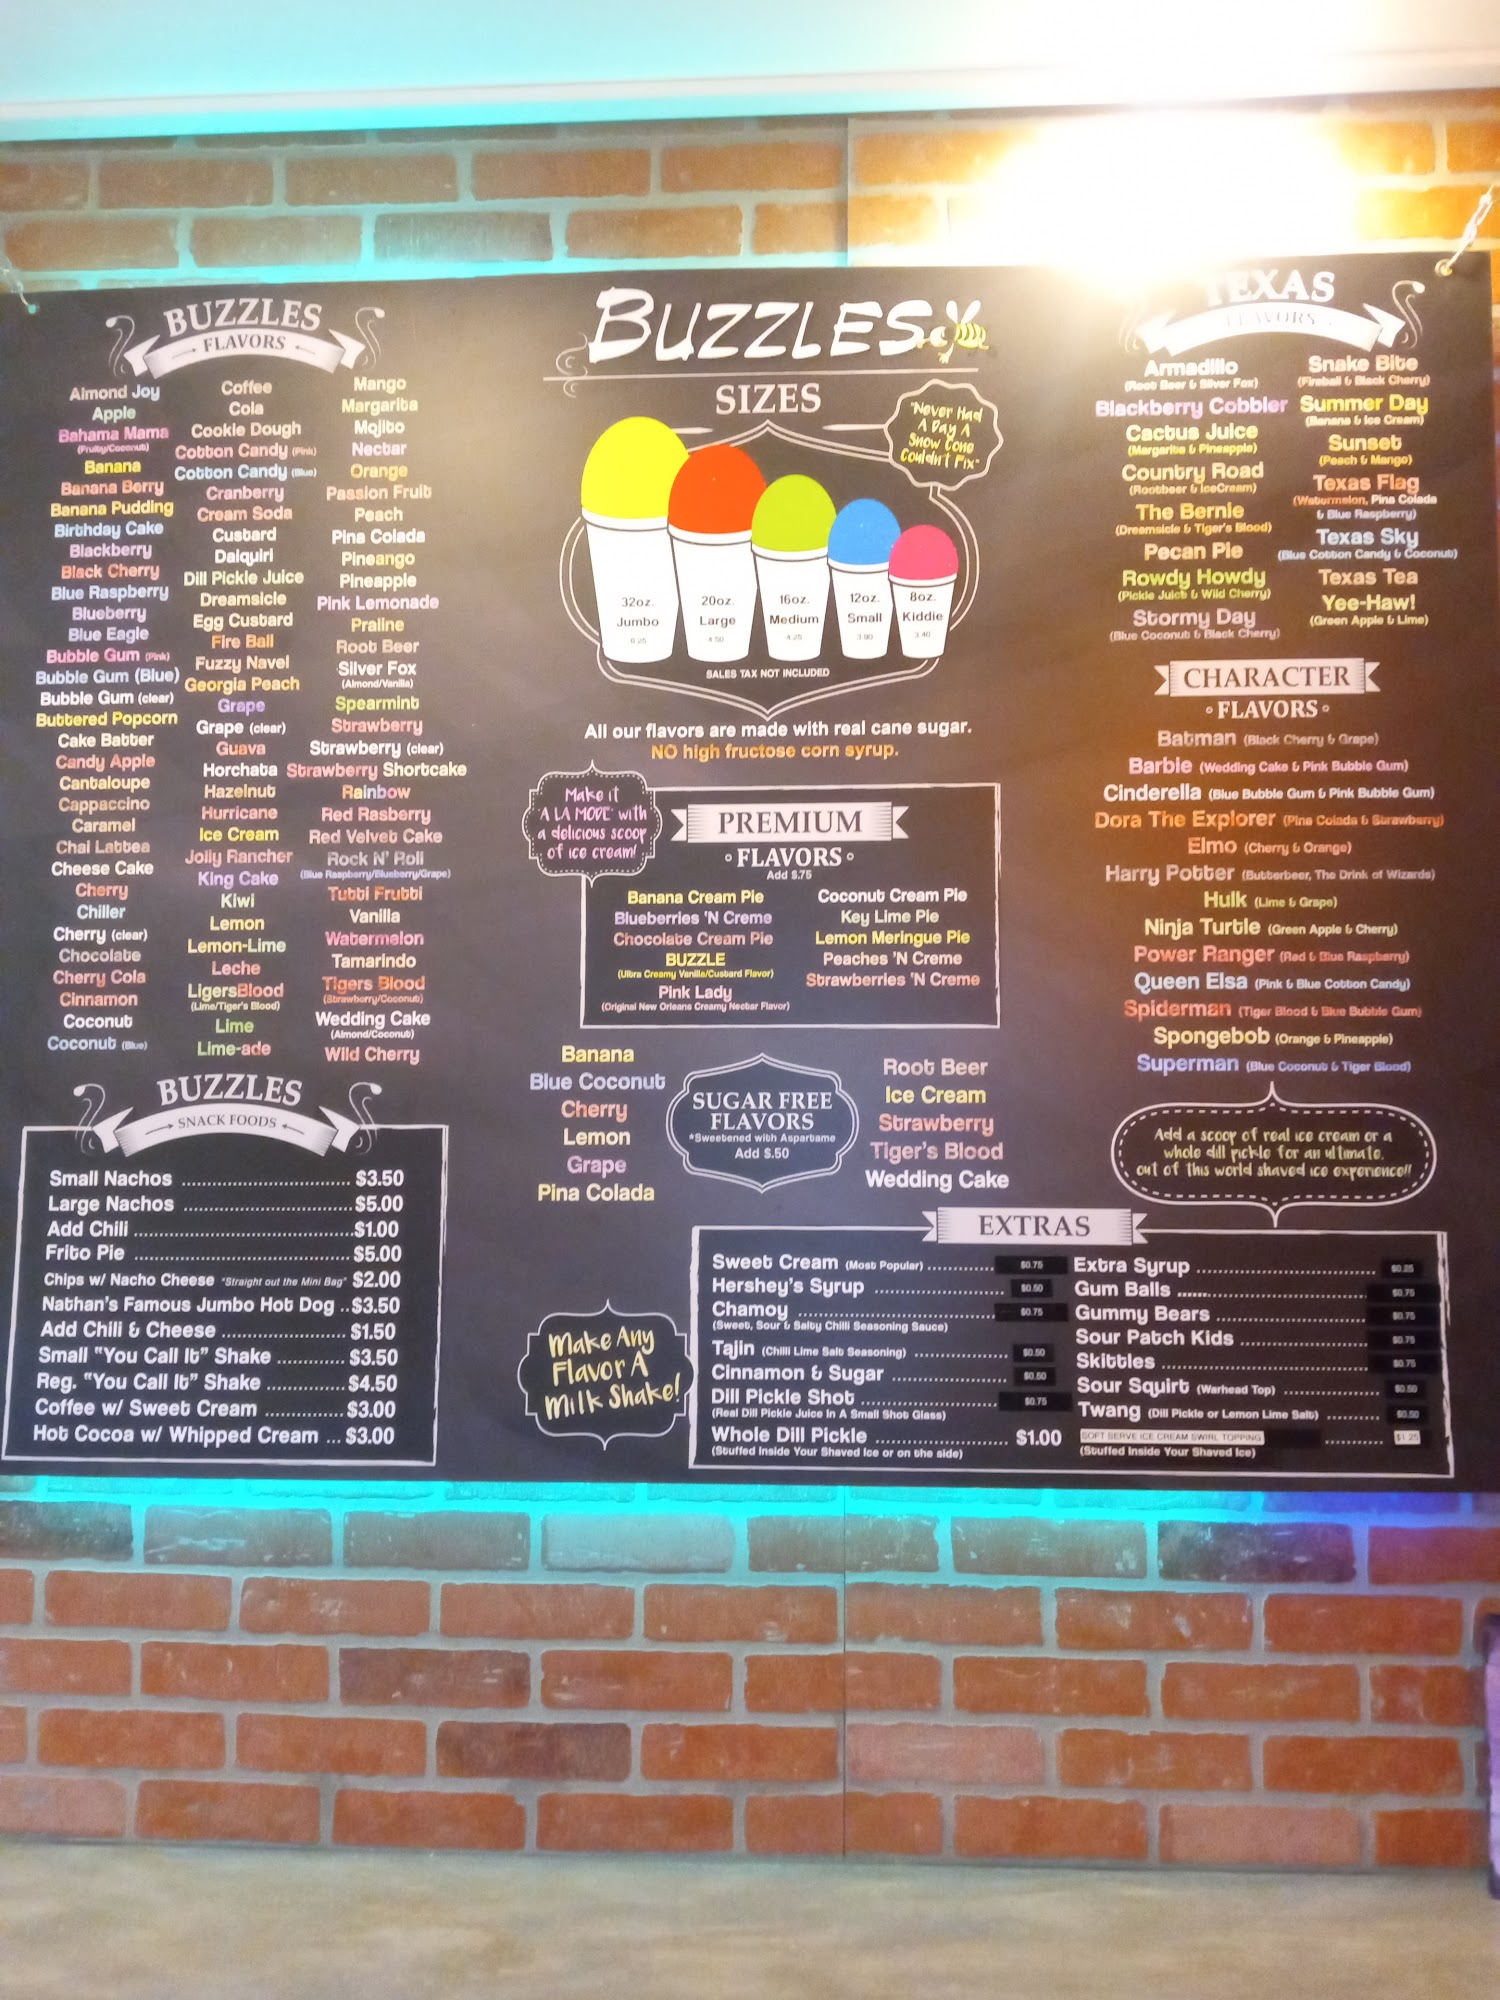 BUZZLES
FLAVORS
Almond Joy
Apple
Bahama Mama
(Fruity/Coconut)
Banana
Banana Berry
Banana Pudding
Birthday Cake
Blackberry
Black Cherry
Blue Raspberry
Blueberry
Blue Eagle
Bubble Gum (Pink)
Bubble Gum (Blue)
Bubble Gum (clear)
Buttered Popcorn
Cake Batter
Candy Apple
Cantaloupe
Cappaccino
Caramel
Chai Lattea
Cheese Cake
Cherry
Chiller
Cherry (clear)
Chocolate
Cherry Cola
Cinnamon
Coconut
Coconut (Blue)
Coffee
Cola
Cookie Dough
Cotton Candy (Pink)
Cotton Candy (Blue)
Cranberry
Cream Soda
Custard
Daiquiri
Dill Pickle Juice
Dreamsicle
Egg Custard
Fire Ball
Fuzzy Navel
Georgia Peach
Grape
Grape (clear)
Guava
Horchata
Hazelnut
Hurricane
Ice Cream
Jolly Rancher
King Cake
Kiwi
Lemon
Lemon-Lime
Leche
LigersBlood
(Lime/Tiger's Blood)
Lime
Lime-ade
Mango
Margarita
Mojito
Nectar
Orange
Passion Fruit
Peach
Pina Colada
Pineango
Pineapple
Pink Lemonade
Praline
Root Beer
Silver Fox
(Almond/Vanilla)
Spearmint
Strawberry
Strawberry (clear)
Strawberry Shortcake
Rainbow
Red Rasberry
Red Velvet Cake
Rock N' Roll
(Blue Raspberry/Blueberry/Grape)
Tutti Frutti
Vanilla
Watermelon
Tamarindo
Tigers Blood
(Strawberry/Coconut)
Wedding Cake
(Almond/Coconut)
Wild Cherry
BUZZLES
SNACK FOODS
Small Nachos ................................. $3.50
Large Nachos ................................. $5.00
Add Chili ........................................... $1.00
Frito Pie .......................................... $5.00
Chips w/ Nacho Cheese "Straight out the Mini Bag" $2.00
Nathan's Famous Jumbo Hot Dog .. $3.50
Add Chili & Cheese ........................ $1.50
Small "You Call It" Shake ............. $3.50
Reg. "You Call It" Shake ............... $4.50
Coffee w/ Sweet Cream ............... $3.00
Hot Cocoa w/ Whipped Cream ... $3.00
BUZZLES
SIZES
"Never Had
A Day A
Snow Cone
Couldn't Fix"
32oz.
Jumbo
6.25
20oz.
Large
4.50
16oz.
Medium
4.25
12oz.
Small
3.90
8oz.
Kiddie
3.40
SALES TAX NOT INCLUDED
All our flavors are made with real cane sugar.
NO high fructose corn syrup.
Make it
'A LA MODE' with
a delicious scoop
of ice cream!
PREMIUM
FLAVORS
Add $.75
Banana Cream Pie
Blueberries 'N Creme
Chocolate Cream Pie
BUZZLE
(Ultra Creamy Vanilla/Custard Flavor)
Pink Lady
(Original New Orleans Creamy Nectar Flavor)
Coconut Cream Pie
Key Lime Pie
Lemon Meringue Pie
Peaches 'N Creme
Strawberries 'N Creme
Banana
Blue Coconut
Cherry
Lemon
Grape
Pina Colada
SUGAR FREE
FLAVORS
*Sweetened with Aspartame
Add $.50
Root Beer
Ice Cream
Strawberry
Tiger's Blood
Wedding Cake
Make Any
Flavor A
Milk Shake!
TEXAS
FLAVORS
Armadillo
(Root Beer & Silver Fox)
Blackberry Cobbler
Cactus Juice
(Margarita & Pineapple)
Country Road
(Rootbeer & IceCream)
The Bernie
(Dreamsicle & Tiger's Blood)
Pecan Pie
Rowdy Howdy
(Pickle Juice & Wild Cherry)
Stormy Day
(Blue Coconut & Black Cherry)
Snake Bite
(Fireball & Black Cherry)
Summer Day
(Banana & Ice Cream)
Sunset
(Peach & Mango)
Texas Flag
(Watermelon, Pina Colada
& Blue Raspberry)
Texas Sky
(Blue Cotton Candy & Coconut)
Texas Tea
Yee-Haw!
(Green Apple & Lime)
CHARACTER
FLAVORS
Batman (Black Cherry & Grape)
Barbie (Wedding Cake & Pink Bubble Gum)
Cinderella (Blue Bubble Gum & Pink Bubble Gum)
Dora The Explorer (Pina Colada & Strawberry)
Elmo (Cherry & Orange)
Harry Potter (Butterbeer, The Drink of Wizards)
Hulk (Lime & Grape)
Ninja Turtle (Green Apple & Cherry)
Power Ranger (Red & Blue Raspberry)
Queen Elsa (Pink & Blue Cotton Candy)
Spiderman (Tiger Blood & Blue Bubble Gum)
Spongebob (Orange & Pineapple)
Superman (Blue Coconut & Tiger Blood)
Add a scoop of real ice cream or a
whole dill pickle for an ultimate,
out of this world shaved ice experience!!
EXTRAS
Sweet Cream (Most Popular) ............ $0.75
Hershey's Syrup ......................... $0.50
Chamoy .................................... $0.75
(Sweet, Sour & Salty Chilli Seasoning Sauce)
Tajin (Chilli Lime Salt Seasoning) ................. $0.50
Cinnamon & Sugar ..................... $0.50
Dill Pickle Shot .......................... $0.75
(Real Dill Pickle Juice In A Small Shot Glass)
Whole Dill Pickle ......................... $1.00
(Stuffed Inside Your Shaved Ice or on the side)
Extra Syrup .................................. $0.25
Gum Balls .................................... $0.75
Gummy Bears ............................. $0.75
Sour Patch Kids .......................... $0.75
Skittles ........................................ $0.75
Sour Squirt (Warhead Top) .................. $0.50
Twang (Dill Pickle or Lemon Lime Salt) .......... $0.50
SOFT SERVE ICE CREAM SWIRL TOPPING ........... $1.25
(Stuffed Inside Your Shaved Ice)